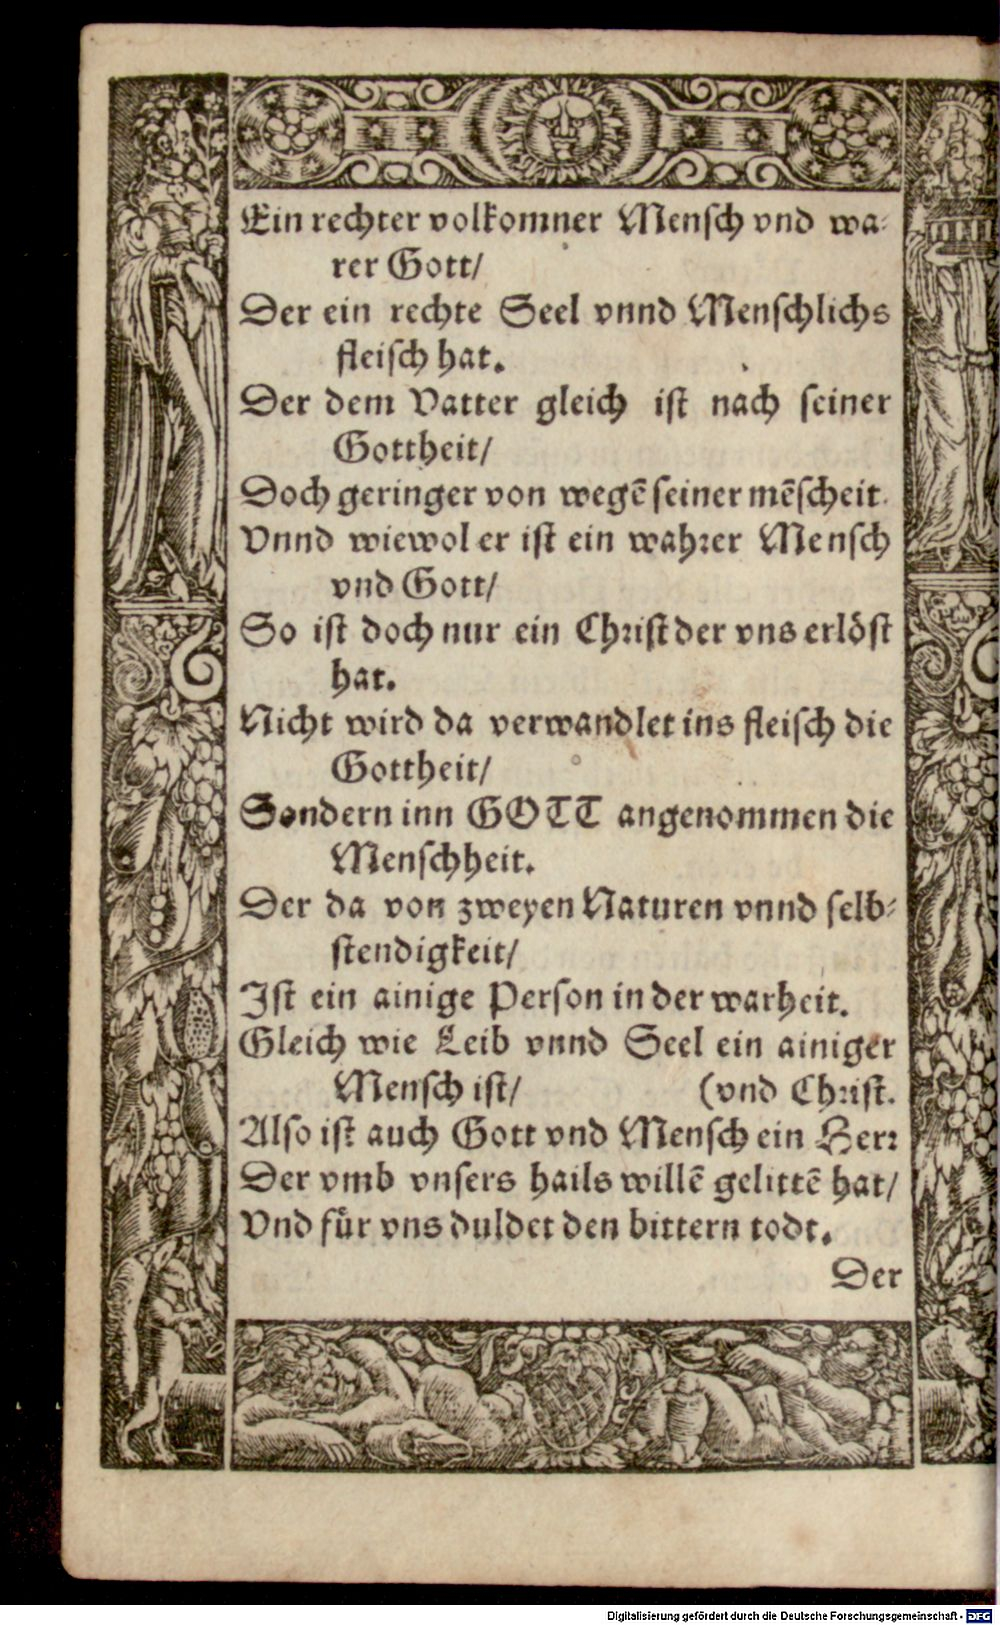 Ein rechter volkomner Mensch vnd wa-
rer Gott/
Der ein rechte Seel vnnd Menschlichs
fleisch hat.
Der dem Vatter gleich ist nach seiner
Gottheit/
Doch geringer von wegē seiner mēscheit.
Vnnd wiewol er ist ein wahrer Mensch
vnd Gott/
So ist doch nur ein Christ der vns erlöst
hat.
Nicht wird da verwandlet ins fleisch die
Gottheit/
Sondern inn GOTT angenommen die
Menschheit.
Der da von zweyen Naturen vnnd selb-
stendigkeit/
Ist ein ainige Person in der warheit.
Gleich wie Leib vnnd Seel ein ainiger
Mensch ist/ (vnd Christ.
Also ist auch Gott vnd Mensch ein Herr
Der vmb vnsers hails willē gelittē hat/
Vnd für vns duldet den bittern todt.
Der
Digitalisierung gefördert durch die Deutsche Forschungsgemeinschaft - DFG